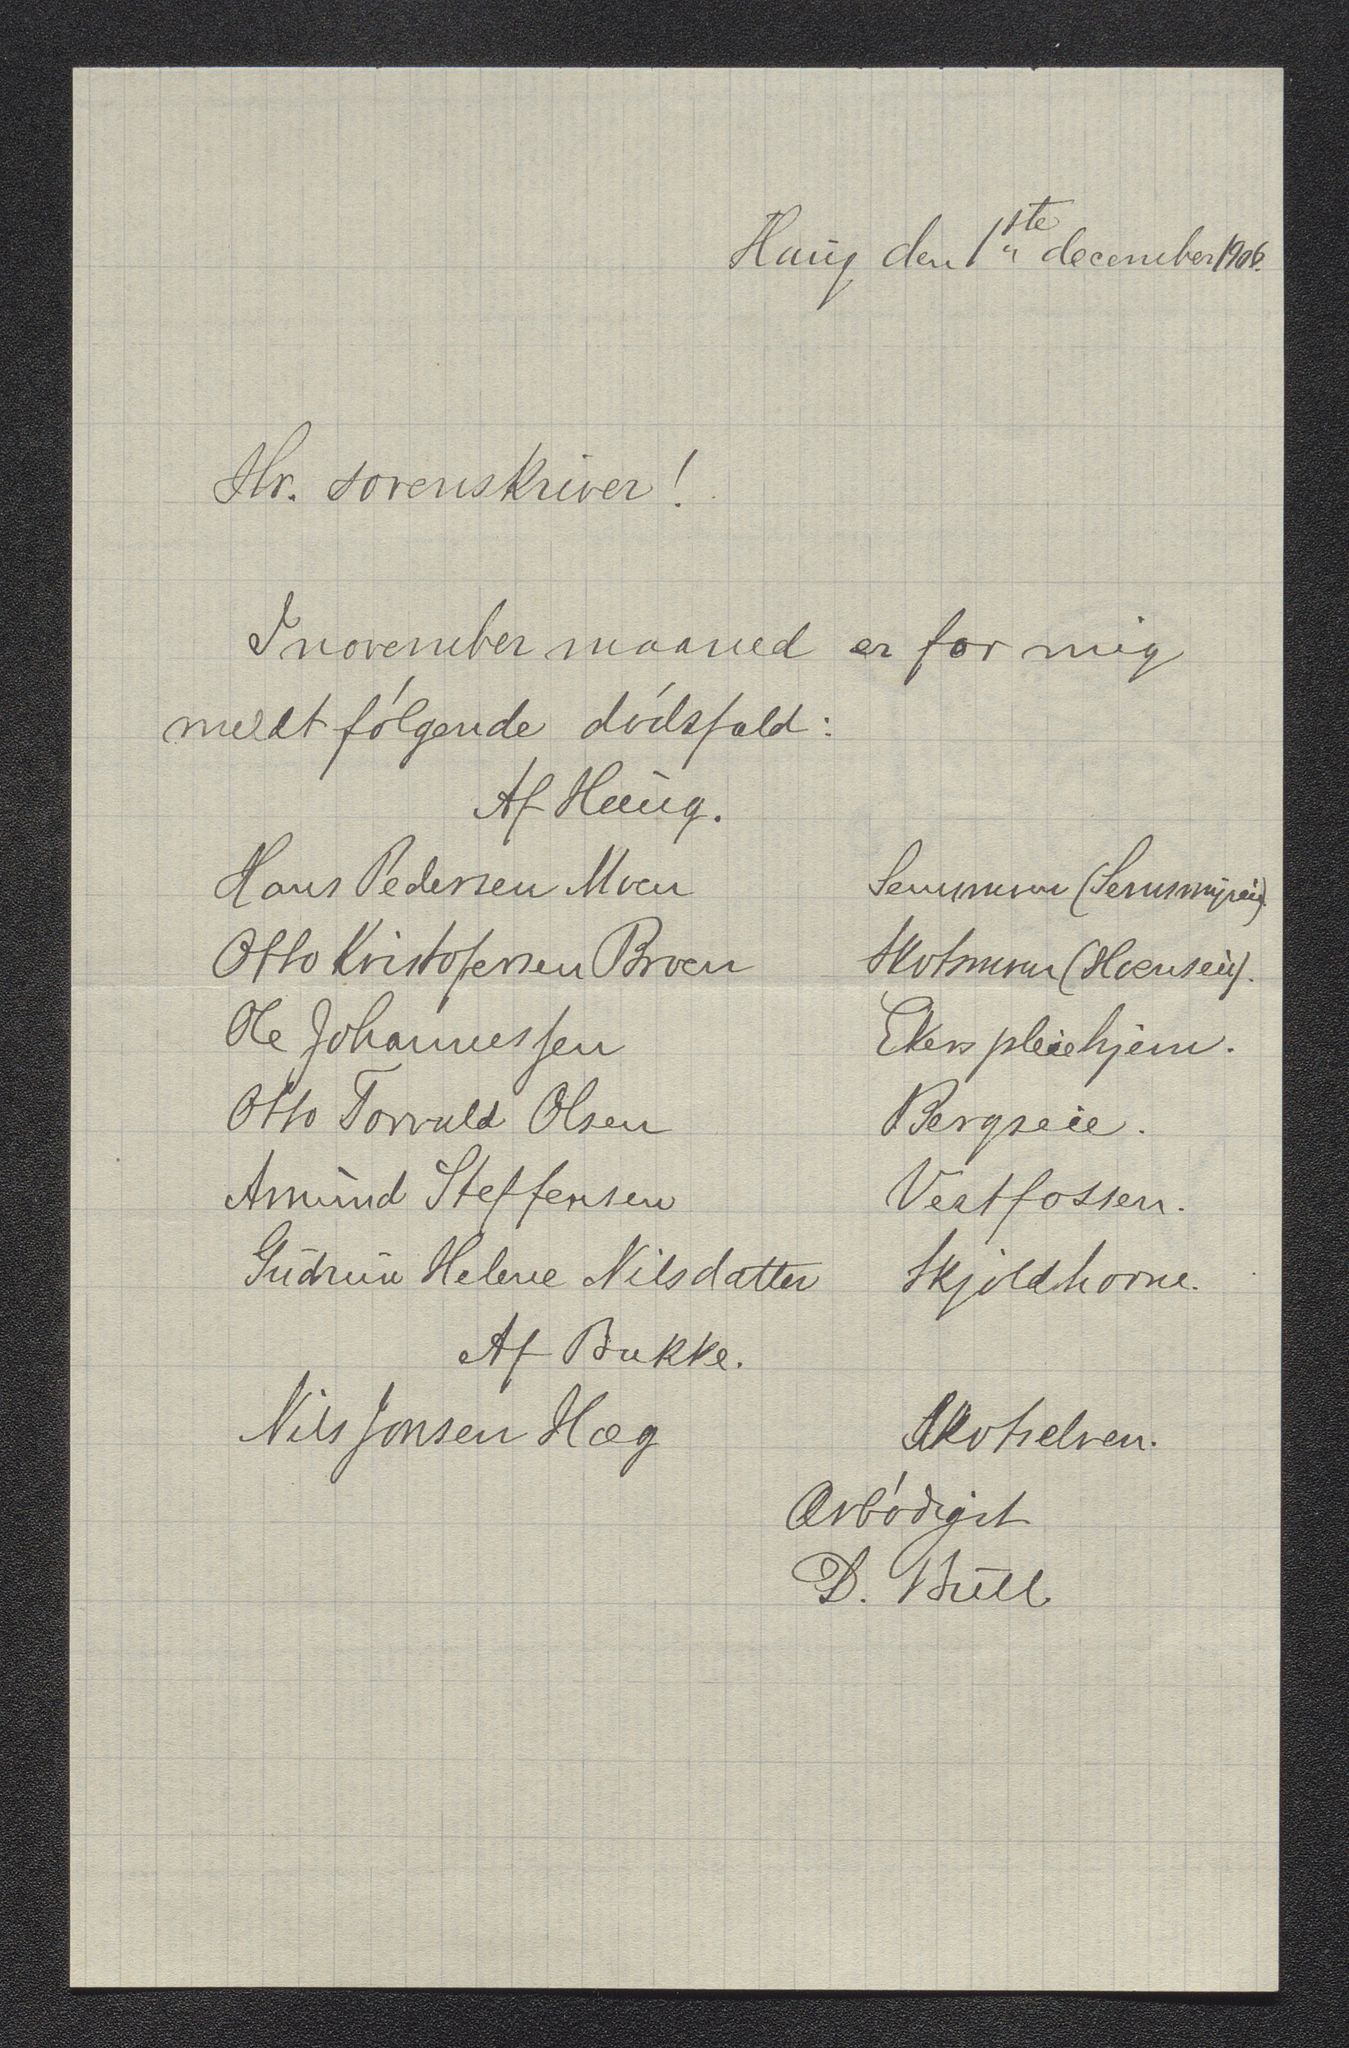 Haug den 1ste december 1906.
Hr. sorenskriver!
I november maaned er for mig
meldt følgende dødsfald:
Af Haug.
Hans Pedersen Moen Semsmoen (Semsmyreie).
Otto Kristofersen Broen Skotsmoen (Hoenseie).
Ole Johannessen Ekers pleiehjem.
Otto Torvald Olsen Bergseie.
Amund Steffensen Vestfossen.
Gudrun Helene Nilsdatter Skjoldhorne.
Af Bakke.
Nils Jonsen Hæg Skotselven.
Ærbødigst
D. Bull